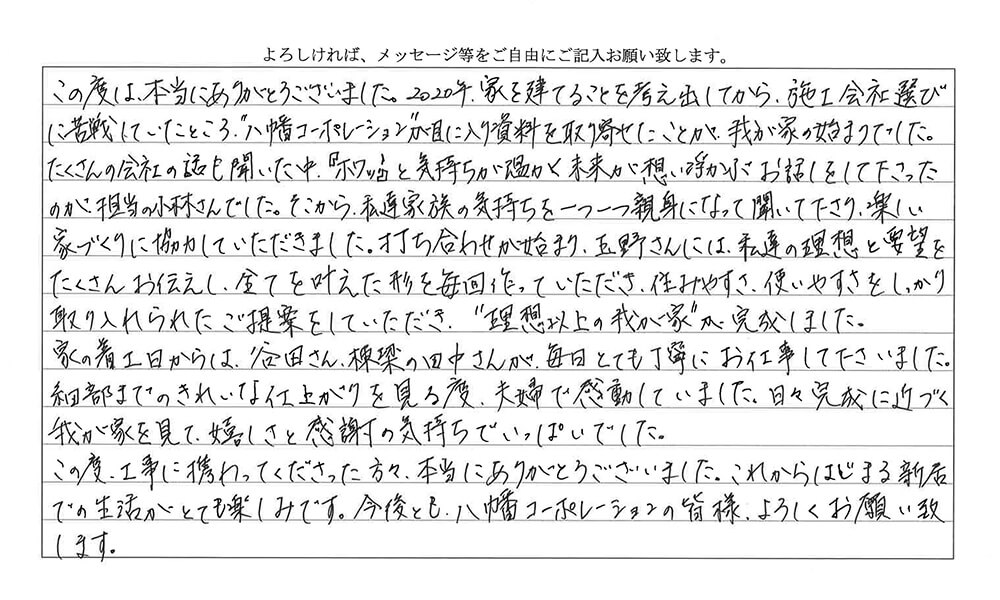 よろしければ、メッセージ等をご自由にご記入お願い致します。
この度は、本当にありがとうございました。2020年、家を建てることを考え出してから、施工会社選び
に苦戦していたところ、"八幡コーポレーション"が目に入り資料を取り寄せたことが、我が家の始まりでした。
たくさんの会社の話も聞いた中、『ホワッ』と気持ちが温かく未来が想い浮かぶお話しをして下さった
のが、担当の小林さんでした。そこから、私達家族の気持ちを一つ一つ親身になって聞いて下さり、楽しい
家づくりに協力していただきました。打ち合わせが始まり、五野さんには、私達の理想と要望を
たくさんお伝えし、全てを叶えた形を毎回作っていただき、住みやすさ、使いやすさをしっかり
取り入れられたご提案をしていただき、"理想以上の我が家"が完成しました。
家の着工日からは、谷田さん、棟梁の田中さんが、毎日とても丁寧にお仕事して下さいました。
細部までのきれいな仕上がりを見る度、夫婦で感動していました。日々完成に近づく
我が家を見て、嬉しさと感謝の気持ちでいっぱいでした。
この度、工事に携わってくださった方々、本当にありがとうございました。これからはじまる新居
での生活がとても楽しみです。今後とも、八幡コーポレーションの皆様、よろしくお願い致
します。